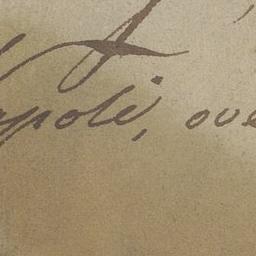 apoli, ove